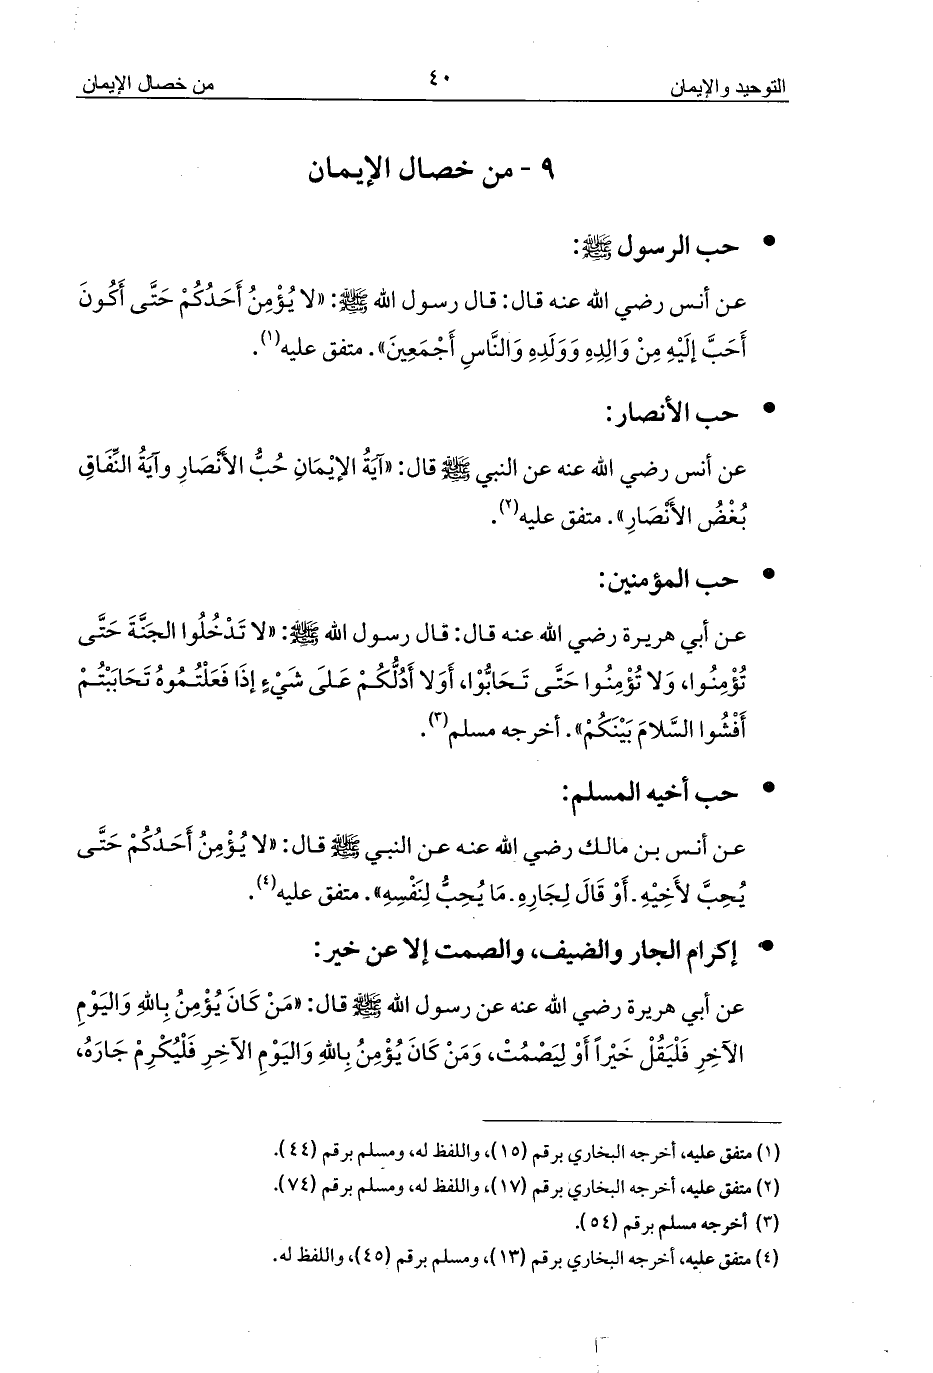 التوحيد والإيمان ٤٠ من خصال الإيمان
٩ - من خصال الإيمان
• حب الرسول ﷺ:
عن أنس رضي الله عنه قال: قال رسول الله ﷺ: «لا يُؤْمِنُ أَحَدُكُمْ حَتَّى أَكُونَ
أَحَبَّ إلَيْهِ مِنْ وَالِدِهِ وَوَلَدِهِ وَالنَّاسِ أَجْمَعِينَ». متفق عليه(١).
• حب الأنصار:
عن أنس رضي الله عنه عن النبي ﷺ قال: «آيَةُ الإيْمَانِ حُبُّ الأَنْصَارِ وآيَةُ النِّفَاقِ
بُغْضُ الأَنْصَارِ». متفق عليه(٢).
• حب المؤمنين:
عن أبي هريرة رضي الله عنه قال: قال رسول الله ﷺ: «لا تَدْخُلُوا الجَنَّةَ حَتَّى
تُؤْمِنُوا، وَلا تُؤْمِنُوا حَتَّى تَحَابُّوْا، أَوَلا أَدُلُّكُمْ عَلَى شَيْءٍ إذَا فَعَلْتُمُوهُ تَحَابَبْتُمْ
أَفْشُوا السَّلامَ بَيْنَكُمْ». أخرجه مسلم(٣).
• حب أخيه المسلم:
عن أنس بن مالك رضي الله عنه عن النبي ﷺ قال: «لا يُؤْمِنُ أَحَدُكُمْ حَتَّى
يُحِبَّ لأَخِيْهِ ـ أَوْ قَالَ لِجَارِهِ ـ مَا يُحِبُّ لِنَفْسِهِ». متفق عليه(٤).
• إكرام الجار والضيف، والصمت إلا عن خير:
عن أبي هريرة رضي الله عنه عن رسول الله ﷺ قال: «مَنْ كَانَ يُؤْمِنُ بِاللهِ وَاليَوْمِ
الآخِرِ فَلْيَقُلْ خَيْراً أَوْ لِيَصْمُتْ، وَمَنْ كَانَ يُؤْمِنُ بِاللهِ وَاليَوْمِ الآخِرِ فَلْيُكْرِمْ جَارَهُ،
(١) متفق عليه، أخرجه البخاري برقم (١٥)، واللفظ له، ومسلم برقم (٤٤).
(٢) متفق عليه، أخرجه البخاري برقم (١٧)، واللفظ له، ومسلم برقم (٧٤).
(٣) أخرجه مسلم برقم (٥٤).
(٤) متفق عليه، أخرجه البخاري برقم (١٣)، ومسلم برقم (٤٥)، واللفظ له.